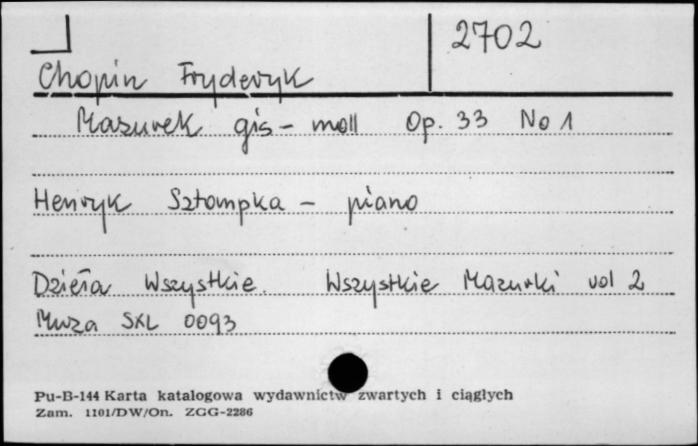 2702
Chopin Fryderyk
Mazurek gis-moll Op. 33 No 1
Henryk Sztompka - piano
Dzieła Wszystkie. Wszystkie Mazurki vol 2
Muza SXL 0093
Pu-B-144 Karta katalogowa wydawnictw zwartych i ciągłych
Zam. 1101/DW/On. ZGG-2286